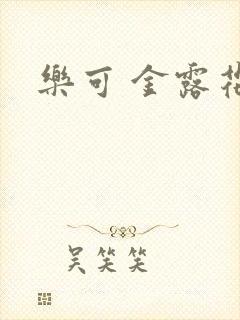 樂可 金露
吴笑笑